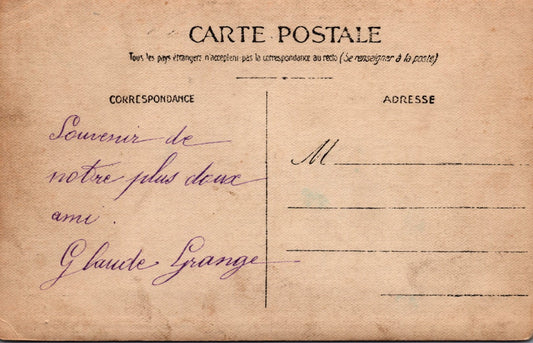 CARTE POSTALE
Tous les pays étrangers n'acceptent pas la correspondance au recto (Se renseigner à la poste)
CORRESPONDANCE
ADRESSE
Souvenir de
notre plus doux
ami.
Glaude Grange
M